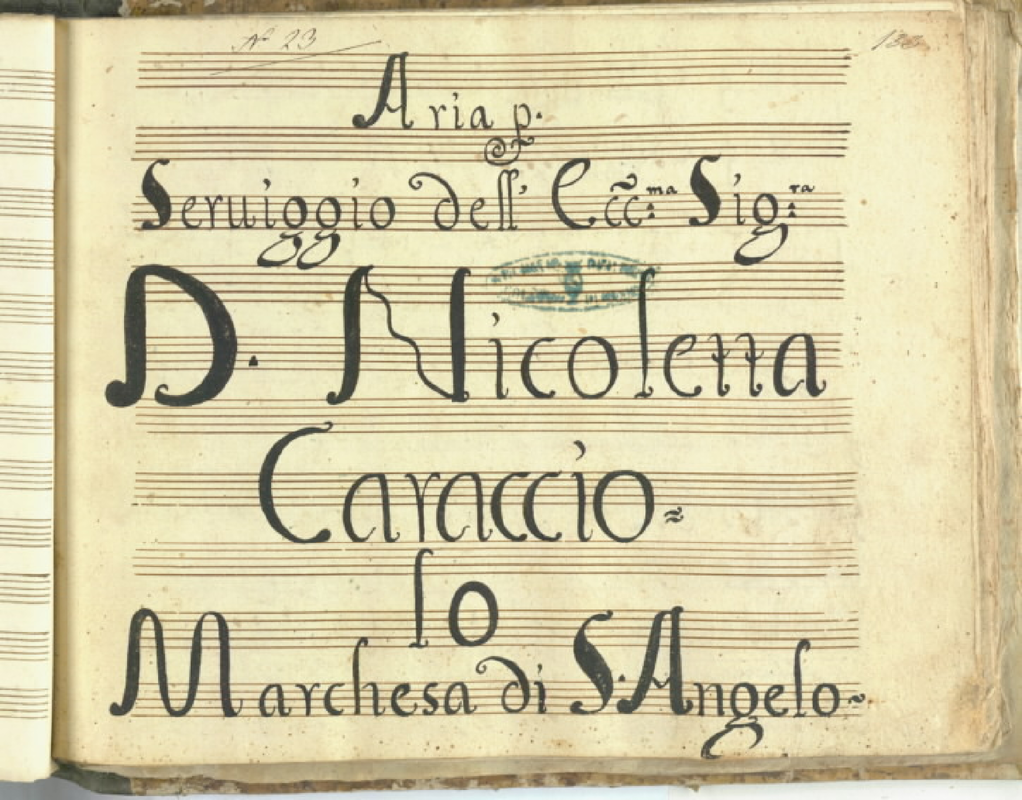 N° 23
Aria p.
Seruiggio dell' Ecc:ma Sig:ra
D. Nicoletta
Caraccio=
lo
Marchesa di S. Angelo~